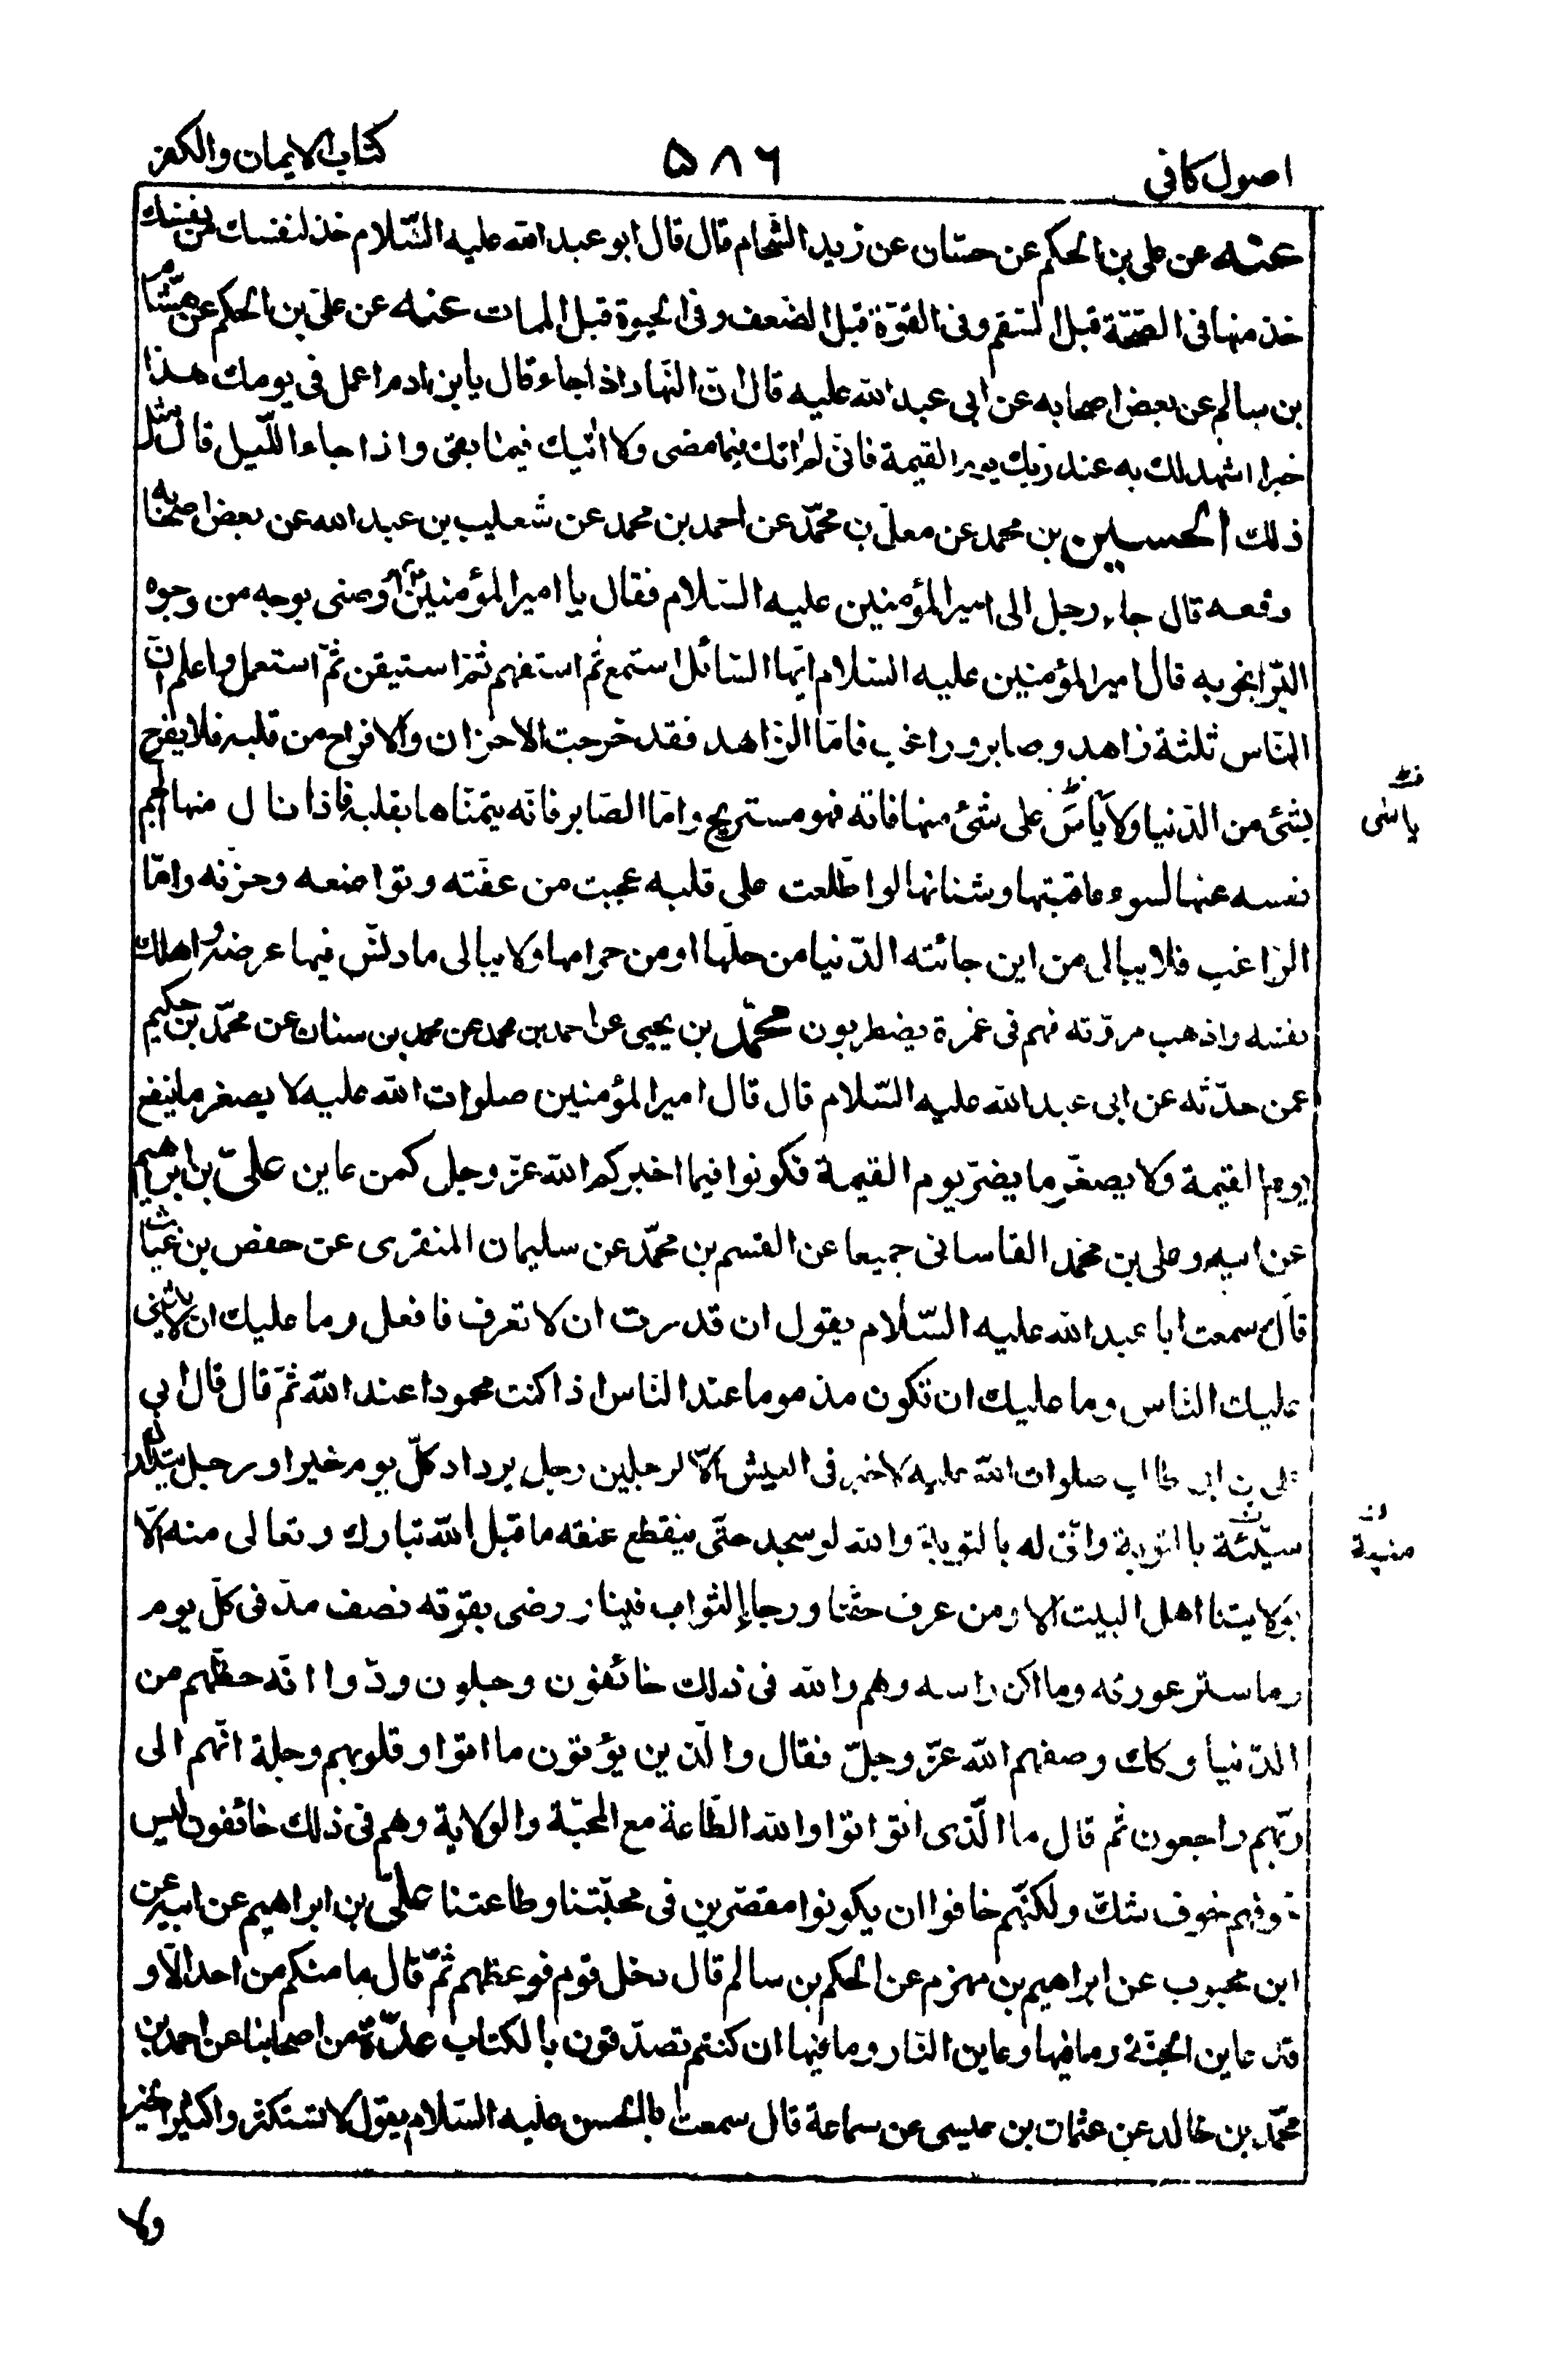 اصول كافى
۵۸۶
كتاب الايمان والكفر
عنه عن على بن الحكم عن حسّان عن زيد الشحّام قال قال ابو عبد الله عليه السّلام خذ لنفسك من نفسك
خذ منها فى الصّحّة قبل السّقم وفى القوّة قبل الضعف وفى الحيوة قبل الممات عنه عن علىّ بن الحكم عن هشام
بن سالم عن بعض اصحابه عن ابى عبد الله عليه قال انّ النّهار اذا جاء قال يا بن ادم اعمل فى يومك هذا
خيرا اشهد لك به عند ربّك يوم القيمة فانّى لم اتك فيما مضى ولا اتيك فيما بقى واذا جاء اللّيل قال مثل
ذلك الحسين بن محمد عن معلّى بن محمّد عن احمد بن محمد عن شعيب بن عبد الله عن بعض اصحابه
رفعه قال جاء رجل الى امير المؤمنين عليه السّلام فقال يا امير المؤمنين اوصنى بوجه من وجوه
البّر انجو به قال امير المؤمنين عليه السّلام ايّها السّائل استمع ثم استفهم ثمّ استيقن ثمّ استعمل واعلم انّ
النّاس ثلثة زاهد وصابر وراغب فامّا الزّاهد فقد خرجت الاحزان والافراح من قلبه فلا يفرح
بشئ من الدّنيا ولا يأسَ على شئ منها فاته فهو مستريح وامّا الصّابر فانّه يتمنّاها بقلبه فاذا نال منها الجم
نفسه عنها لسوء عاقبتها وشنانها لو اطّلعت على قلبه عجبت من عفّته وتواضعه وحزنه وامّا
الرّاغب فلا يبالى من اين جائته الدّنيا من حلّها او من حرامها ولا يبالى ما دنّس فيها عرضه واهلك
نفسه واذهب مروّته فهم فى غمرة يضطربون محمّد بن يحيى عن احمد بن محمد عن محمد بن سنان عن محمّد بن حكيم
عمن حدّثه عن ابى عبد الله عليه السّلام قال قال امير المؤمنين صلوات الله عليه لا يصغر ما ينفع
يوم القيمة ولا يصغر ما يضرّ يوم القيمة فكونوا فيما اخبركم الله عزّ وجل كمن عاين علىّ بن ابرهيم
عن ابيه وعلى بن محمّد القاسانى جميعا عن القسم بن محمّد عن سليمان المنقرى عن حفص بن غياث
قال سمعت ابا عبد الله عليه السّلام يقول ان قدرت ان لا تعرف فافعل وما عليك ان لا يثنى
عليك النّاس وما عليك ان تكون مذموما عند النّاس اذا كنت محمودا عند الله ثمّ قال قال ابى
على بن ابى طالب صلوات الله عليه لا خير فى العيش الّا لرجلين رجل يزداد كلّ يوم خيرا ورجل يتدارك
سيّئة بالتوبة وانّى له بالتوبة والله لو سجد حتّى ينقطع عنقه ما قبل الله تبارك وتعالى منه الّا
بولايتنا اهل البيت الا ومن عرف حقّنا ورجا الثواب فينا ورضى بقوته نصف مدّ فى كلّ يوم
وما ستر عورته وما اكن راسه وهم والله فى ذلك خائفون وجلون ودّوا انّه حظّهم من
الدّنيا وكذلك وصفهم الله عزّ وجلّ فقال والّذين يؤتون ما اتوا وقلوبهم وجلة انّهم الى
ربّهم راجعون ثم قال ما الّذى اتوا اتوا والله الطّاعة مع المحبّة والولاية وهم فى ذلك خائفون ليس
خوفهم خوف شكّ ولكنّهم خافوا ان يكونوا مقصّرين فى محبّتنا وطاعتنا علىّ بن ابراهيم عن ابيه عن
ابن محبوب عن ابراهيم بن مهزم عن الحكم بن سالم قال دخل قوم فوعظهم ثمّ قال ما منكم من احد الّا و
قد عاين الجنّة وما فيها وعاين النّار وما فيها ان كنتم تصدّقون بالكتاب عدّة من اصحابنا عن احمد بن
محمّد بن خالد عن عثمان بن عيسى عن سماعة قال سمعت ابا الحسن عليه السّلام يقول لا تستكثروا كثير الخير
ياسى
ولا